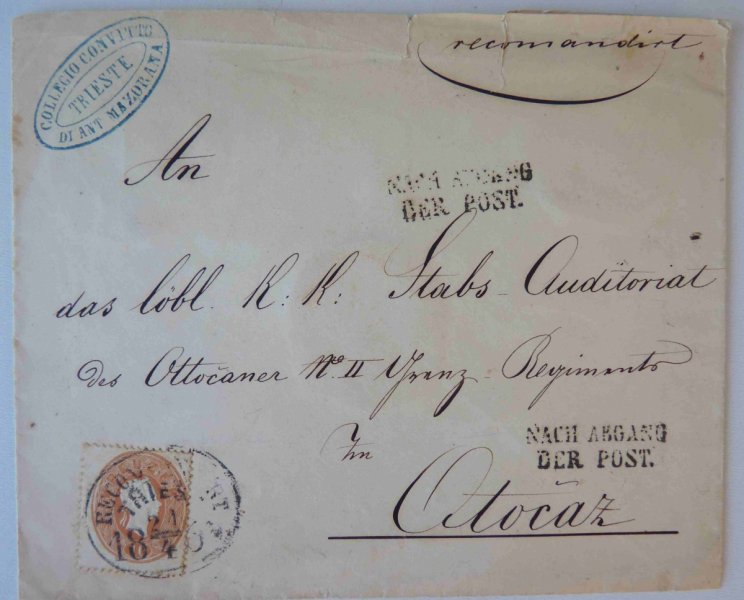 COLLEGIO CONVITTO
TRIESTE
DI ANT MAZORANA
recomandirt
An
NACH ABGANG
DER POST.
das löbl. K: K: Stabs-Auditoriat
des Ottočaner No II Grenz-Regiments
NACH ABGANG
DER POST.
In
Otočaz
RECOM
TRIES
21
18